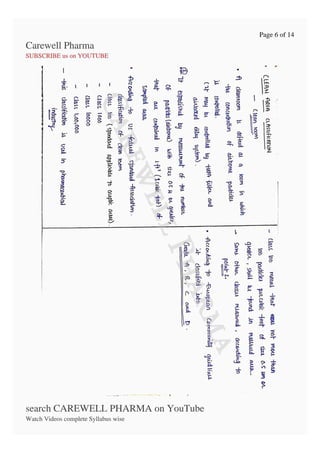 Page 6 of 14
Carewell Pharma
SUBSCRIBE us on YOUTUBE
• CLEAN AREA CLASSIFICATION
— Clean room
• A cleanroom is defined as a room in which
the concentration of airborne particles
is controlled.
(It may be controlled by HEPA filter and
associated duty system).
① It explained by measurement of the number
of particles (airborne) with size 0.5 µ or greater,
that are contained in 1 ft³ (1 cubic foot) of
sampled area.
• According to US federal standard Association.
classification of clean room
— Class 100 (standard applicable to aseptic area).
— Class 1000
— Class 10000
— Class 1,00,000
— This classification is used in pharmaceutical
industry.
— Class 100 means that not more than
100 particles per cubic feet of size 0.5 µm or
greater, shall be found in measured area.
— Same other class measured, according to
point-1.
• According to European Community guidelines
it classified into
Grade A, B, C and D.
CAREWELL PHARMA
search CAREWELL PHARMA on YouTube
Watch Videos complete Syllabus wise